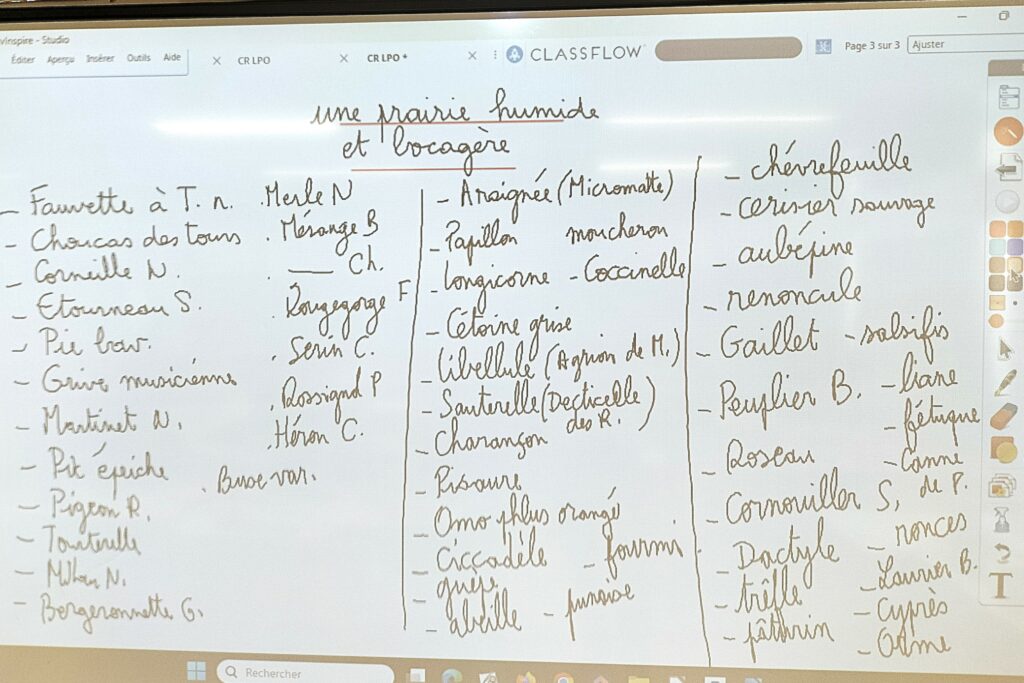 vinspire - Studio
Éditer Aperçu Insérer Outils Aide
CR LPO
CR LPO *
CLASSFLOW
Page 3 sur 3
Ajuster
une prairie humide
et bocagère
- Fauvette à T. n.
- Choucas des tours
- Corneille N.
- Etourneau S.
- Pie bav.
- Grive musicienne
- Martinet N.
- Pic épeiche
- Pigeon R.
- Tourterelle
- Milan N.
- Bergeronnette G.
. Merle N
. Mésange B
. ___ Ch.
. Rougegorge F
. Serin C.
. Rossignol P
. Héron C.
. Buse var.
- Araignée (Micromatte)
- Papillon moucheron
- Longicorne - Coccinelle
- Cétoine grise
- Libellule (Agrion de M.)
- Sauterelle (Decticelle
des R. )
- Charançon
- Pisaure
- Omophlus orangé
- Ciccadèle - fourmi
- guêpe
- abeille - punaise
- chévrefeuille
- cerisier sauvage
- aubépine
- renoncule
- Gaillet - salsifis
- Peuplier B. - liane
- fétuque
- Roseau - Canne
de P.
- Cornouiller S,
- ronces
- Dactyle
- Laurier B.
- trêfle - Cyprès
- pâthurin - Orme
Rechercher
T